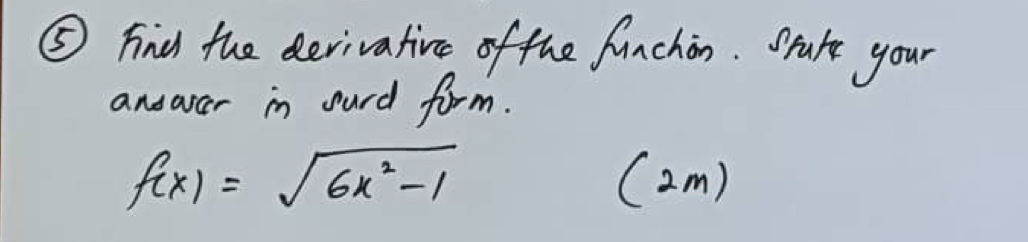 ⑤ Find the derivative of the function. State your
answer in surd form.
f(x) = √(6x²-1) (2m)